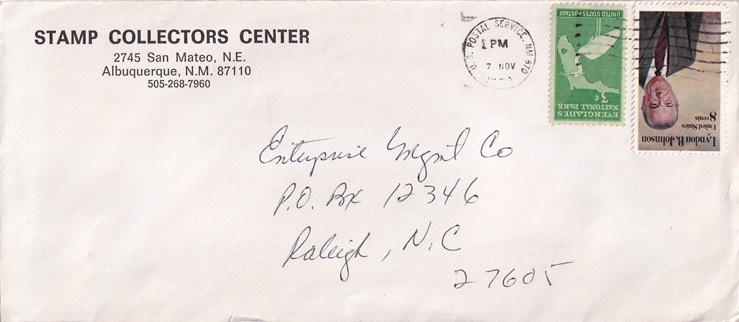 STAMP COLLECTORS CENTER
2745 San Mateo, N.E.
Albuquerque, N.M. 87110
505-268-7960
U.S. POSTAL SERVICE, NM 870
PM
7 NOV
UNITED STATES POSTAGE
3¢
EVERGLADES
NATIONAL PARK
Lyndon B. Johnson
United States
8 cents
Enterprise Mgmt Co
P.O. Box 12346
Raleigh, N.C
27605